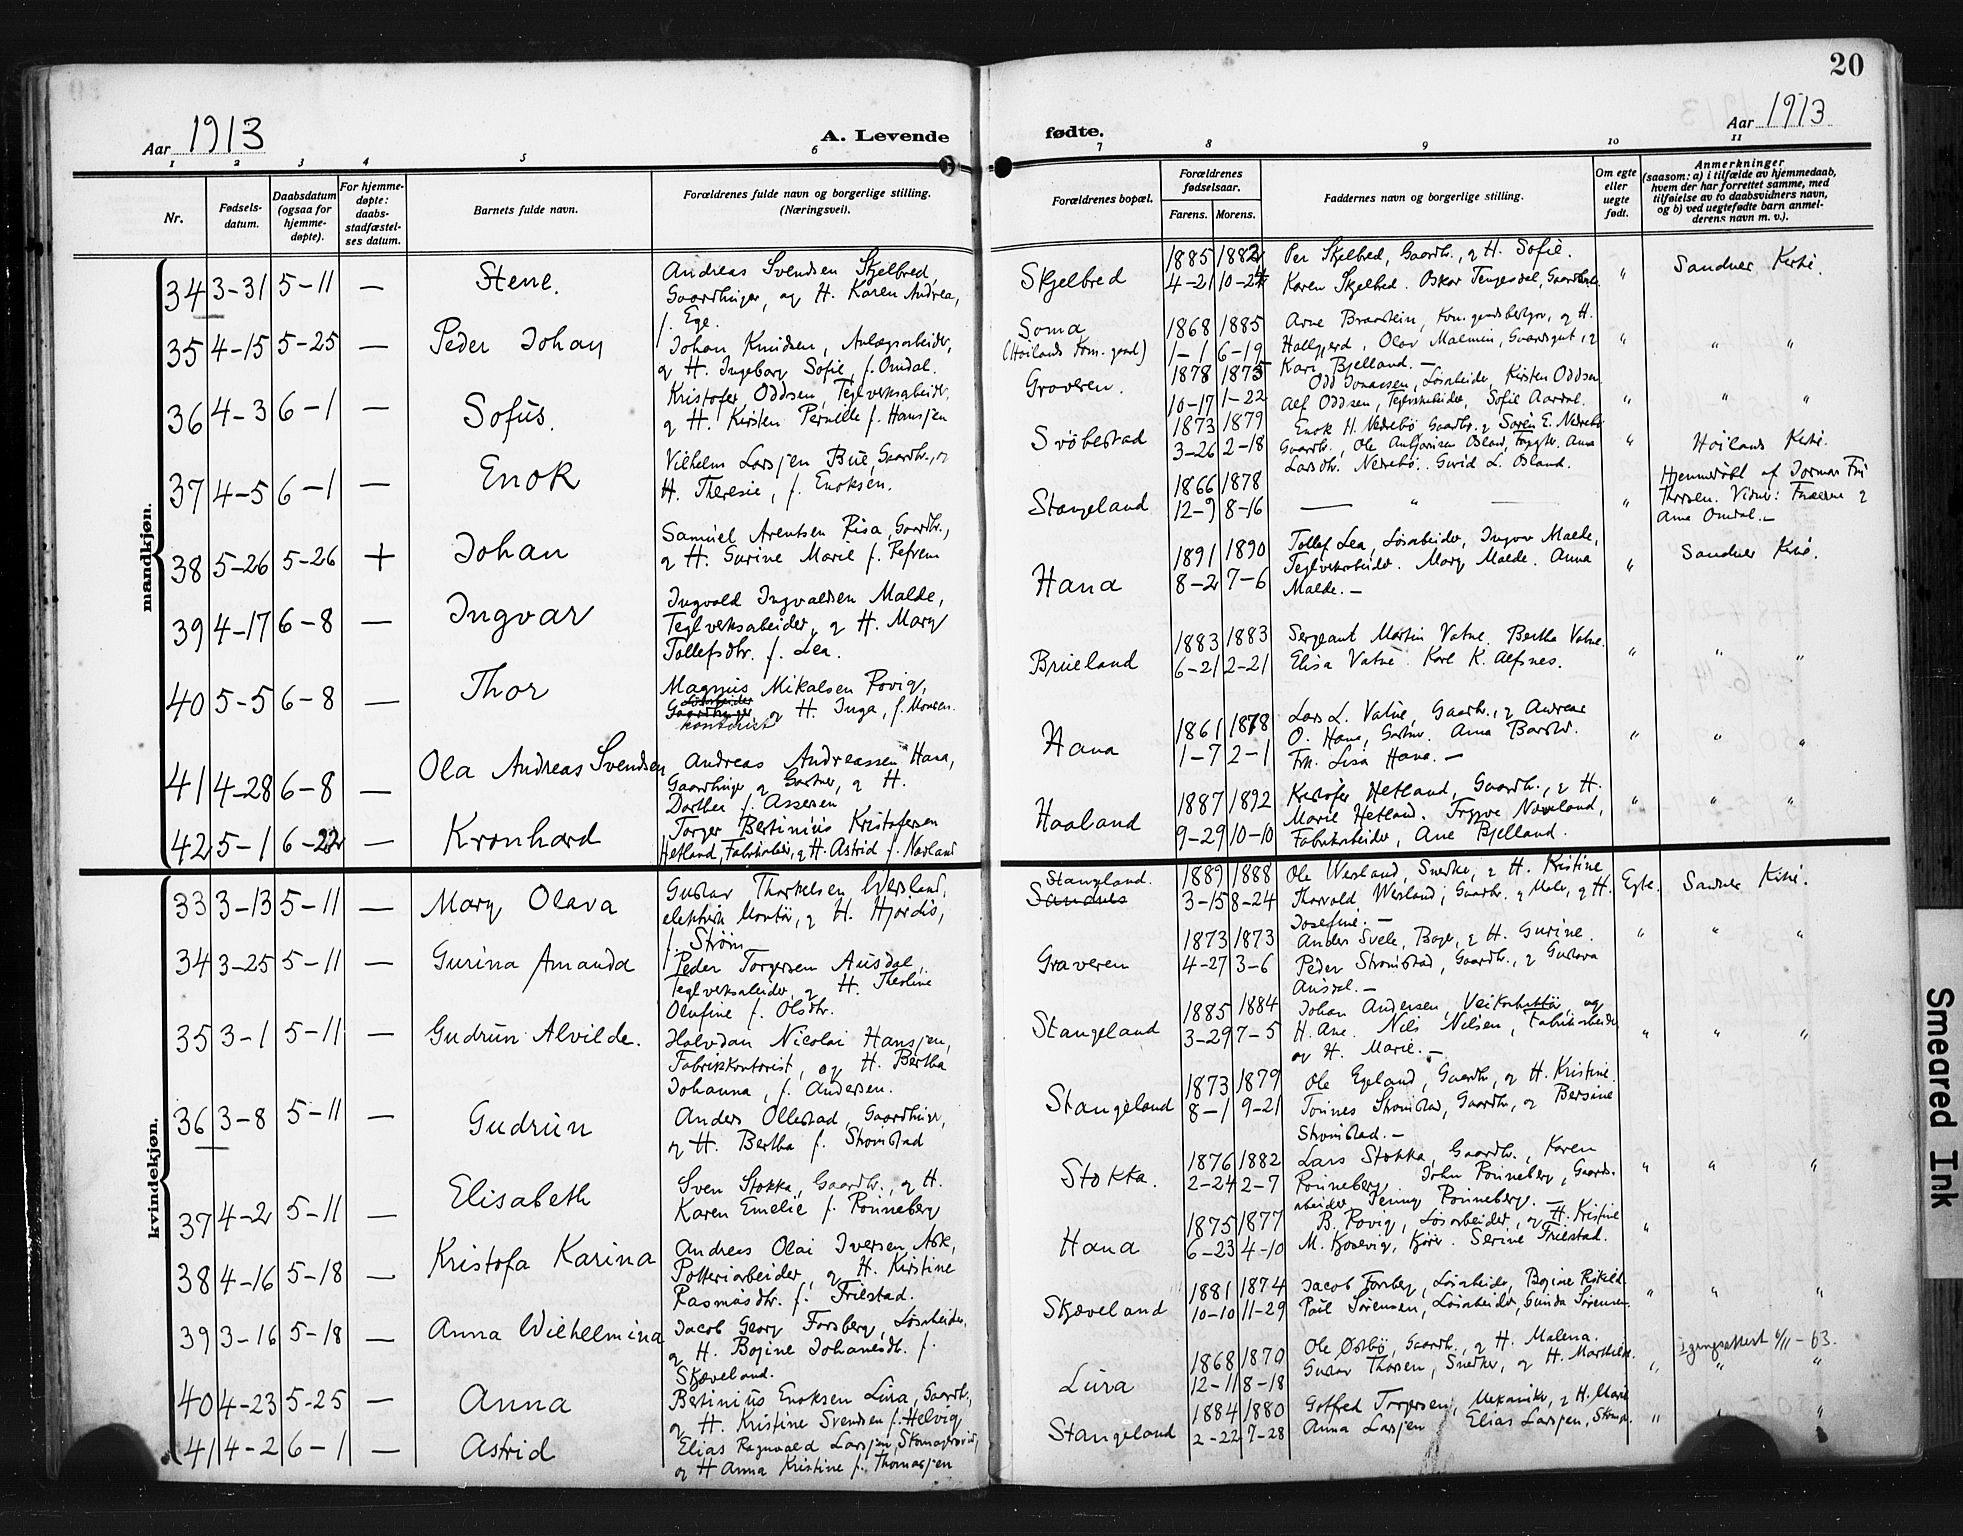 20
Aar 1913
A. Levende
fødte.
Aar 1913
1 2 3 4 5 6 7 8 9 10 11
Nr.
Fødsels-
datum.
Daabsdatum
(ogsaa for
hjemme-
døpte).
For hjemme-
døpte:
daabs-
stadfæstel-
ses datum.
Barnets fulde navn.
Forældrenes fulde navn og borgerlige stilling.
(Næringsvei).
Forældrenes bopæl.
Forældrenes
fødselsaar.
Farens. Morens.
Faddernes navn og borgerlige stilling.
Om egte
eller
uegte
født.
Anmerkninger
(saasom: a) i tilfælde av hjemmedaab,
hvem der har forrettet samme, med
tilføielse av to daabsvidners navn,
og b) ved uegtefødte barn anmel-
derens navn m. v.).
mandkjøn.
34 3-31 5-11 — Stene.
Andreas Svendsen Skjelbred,
Gaardbruger, og H. Karen Andrea,
f. Ege.
Skjelbred
1885 1882
4-21 10-24
Per Skjelbred, Gaardbr., og H. Sofie.
Karen Skjelbred. Oskar Tengesdal, Gaardbruker
" Sandnes Kirke.
35 4-15 5-25 — Peder Johan
Johan Knudsen, Anlægsarbeider,
og H. Ingeborg Sofie, f. Omdal.
Soma
(Høilands Kom. gaard)
1868 1885
1-1 6-19
Arne Braastein, Kom. gaardsbestyrer, og H.
Hallgjerd, Olav Malmin, Gaardsgut, og
Kari Bjelland. —
" " "
36 4-3 6-1 — Sofus.
Kristofer Oddsen, Teglverksarbeider,
og H. Kirsten Pernille f. Hansjen
Graveren.
1878 1875
10-17 1-22
Odd Jonassen, Løsarbeider, Kirsten Oddsen
Alf Oddsen, Teglverksarbeider, Sofie Aardal.
" " "
37 4-5 6-1 — Enok
Vilhelm Larsjen Bue, Gaardbr., og
H. Theresie, f. Enoksen.
Svöbestad
1873 1879
3-26 2-18
Enok H. Nedrebö Gaardbr. og Soren E. Nedrebö
Gaardbr., Ole Anbjørnsen Osland, Anna
Larsdtr. Nedrebö. Gurid L. Osland.
" Høilands Kirke.
38 5-26 5-26 + Johan
Samuel Arentsen Risa, Gaardbr.,
og H. Gurine Marie f. Refvem
Stangeland
1866 1878
12-9 8-16
— " —
"
Hjemmedøbt af Jormor Fru
Thorsen. Vidner: Faderen og
Anna Omdal. —
39 4-17 6-8 — Ingvar
Ingvald Ingvaldsen Malde,
Teglverksarbeider, og H. Mary
Tollefsdtr. f. Lea.
Hana
1891 1890
8-2 7-6
Tollef Lea, Løsarbeider, Ingvar Malde,
Teglverksarbeider. Mary Malde. Anna
Malde. —
" Sandnes Kirke.
40 5-5 6-8 — Thor
Magnus Mikalsen Rovig,
Gaardbruger, og H. Inga, f. Monsen.
Løsarbeider
kontorist
Brueland
1883 1883
6-21 2-21
Sergeant Martin Vatne. Bertha Vatne.
Elisa Vatne. Karl K. Alfsnes.
" " "
41 4-28 6-8 — Ola Andreas Svendsen
Andreas Andreassen Hana,
Gaardbruger og Gartner, og H.
Dorthea f. Assersen
Hana
1861 1878
1-7 2-1
Lars L. Vatne, Gaardbr., og Andreas
O. Hana, Gartner. Anna Barstad.
Frk. Lisa Hana. —
" " "
42 5-1 6-22 — Kronhard
Torger Bertinius Kristofersen
Hetland, Fabrikarbeider, og H. Astrid f. Navland
Haaland
1887 1892
9-29 10-10
Kristofer Hetland, Gaardbr., og H.
Marie Hetland. Trygve Naveland,
Fabrikarbeider, Ane Bjelland.
" " "
kvindekjøn.
33 3-13 5-11 — Mary Olava
Gustav Thorkelsen Wersland,
elektrisk Montør, og H. Hjördis,
f. Strøm
Stangeland.
Sandnes
1889 1888
3-15 8-24
Ole Wersland, Snedker, og H. Kristine,
Thorvald Wersland, Gaardbr. og Maler, og H.
Josefine. —
Egte. Sandnes Kirke.
34 3-25 5-11 — Gurina Amanda
Peder Torgersen Ausdal,
Teglverksarbeider, og H. Theoline
Olufine f. Olsdtr.
Graveren
1873 1873
4-27 3-6
Anders Svele, Bager, og H. Gurine.
Peder Strømstad, Gaardbr., og Gustava
Ausdal. —
" " "
35 3-1 5-11 — Gudrun Alvilde.
Halvdan Nicolai Hansjen,
Fabrikkontorist, og H. Bertha
Johanna, f. Andersen.
Stangeland
1885 1884
3-29 7-5
Johan Andersen, og
H. Ane. Nils Nilsen, Fabrikarbeider
og H. Marie. —
" " "
36 3-8 5-11 — Gudrun
Anders Ollestad, Gaardbruger,
og H. Bertha f. Strømstad
Stangeland
1873 1879
8-1 9-21
Ole Egeland, Gaardbr., og H. Kristine.
Tønnes Strømstad, Gaardbr., og Bersine
Strømstad. —
37 4-2 5-11 — Elisabeth
Sven Stokka, Gaardbr., og H.
Karen Emelie f. Rönneberg
Stokka.
1876 1882
2-24 2-7
Lars Stokka, Gaardbr., Karen
Rönneberg, John Rönneberg, Gaards-
arbeider Jenny Rönneberg. —
" " "
38 4-16 5-18 — Kristofa Karina
Andreas Olai Iversen Ask,
Potteriarbeider, og H. Kirstine
Rasmusdtr. f. Frilestad.
Hana
1875 1877
6-23 4-10
B. Rovig, Løsarbeider, og H. Kristine
M. Kosevig, Kjører. Serine Frilestad.
"
39 3-16 5-18 — Anna Wilhelmina
Jacob Georg Forsberg, Løsarbeider,
og H. Bojine Johanesdtr. f.
Skjæveland.
Skjæveland
1881 1874
10-10 11-29
Jacob Forsberg, Løsarbeider, Bojine
Paul Sørensen, Løsarbeider, Gunda Sørensen.
" " "
40 4-23 5-25 — Anna
Bertinius Enoksen Lura, Gaardbr.,
og H. Kristine Svendsen f. Helvig
Lura
1868 1870
12-11 8-18
Ole Østbø, Gaardbr., og H. Malena.
Gustav Thorsen, Snedker, og H. Marthilde.
" " "
41 4-2 6-1 — Astrid
Elias Ragnvald Larsjen, Skomagersvend,
og H Anna Kristine f. Thomasjen
Stangeland
1884 1880
2-22 7-28
Gotfred Torgersen, Mekaniker, og H. Marie
Anna Larsjen Elias Larsjen,
" " "
Smeared Ink